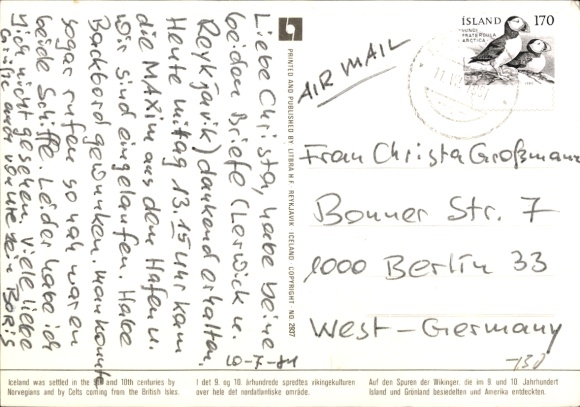 Liebe Christa, habe deine
beiden Briefe (Lerwick u.
Reykjavik) dankend erhalten.
Heute mittag 13.15 Uhr kam
die MAXIM aus dem Hafen u.
wir sind eingelaufen. Habe
Backbord gewunken. man konnte
sogar rufen so nah waren
beide Schiffe. Leider habe ich
Dich nicht gesehen. Viele liebe
Grüße auch von Ute dein Boris
10-7-84
PRINTED AND PUBLISHED BY LITBRA H/F REYKJAVIK ICELAND COPYRIGHT NO. 2937
AIR MAIL
ÍSLAND 170
LUNDI
FRATERCULA
ARCTICA
Frau Christa Großmann
Bonner Str. 7
1000 Berlin 33
West-Germany
-730
Iceland was settled in the 9th and 10th centuries by
Norwegians and by Celts coming from the British Isles.
I det 9. og 10. århundrede spredtes vikingekulturen
over hele det nordatlantiske område.
Auf den Spuren der Wikinger, die im 9. und 10. Jahrhundert
Island und Grönland besiedelten und Amerika entdeckten.